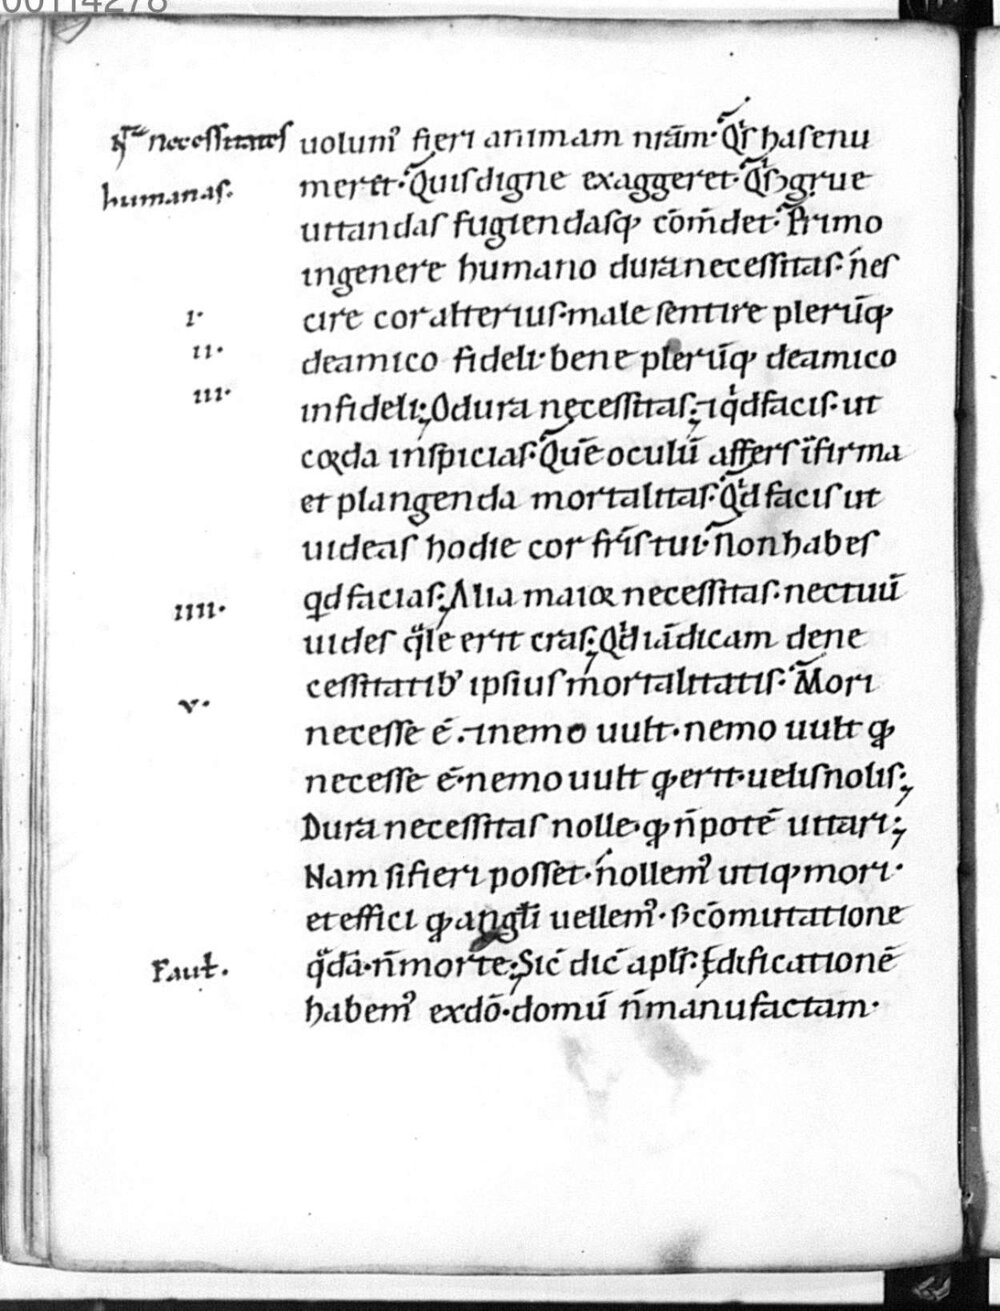 00114278
necessitates uolumꝰ fieri animam nr̄am· Qͥs has enu
humanas. meret· Quis digne exaggeret· Qͥs ɔgrue
uitandas fugiendasq; cōm̄det· Primo
in genere humano dura necessitas· n̄ es
.i. cire cor alterius· male sentire plerūq;
.ii. de amico fideli· bene plerūq; de amico
.iii. infideli; O dura necessitas; ⁊ qͥd facis· ut
corda inspicias· Quē oculū affers īfirma
et plangenda mortalitas· Qͥd facis ut
uideas hodie cor fr̄is tui· Non habes
.iiii. qd facias; Alia maior necessitas· nec tuū
uides q̄le erit cras; Qͥd iā dicam de ne
cessitatibꝰ ipsius mortalitatis· Mori
.v. necesse ē· ⁊ nemo uult· nemo uult qꝫ
necesse ē· nemo uult qꝫ erit· uelis nolis;
Dura necessitas nolle· qꝫ n̄ potē uitari;
Nam si fieri posset· n̄ ollemꝰ utiq; mori·
et effici qꝫ angłi uellemꝰ· ꞩ cōmutatione
qͣdā· n̄ morte; Sic̄ dic̄ apłs· Edificationē
Faut. habemꝰ ex dō· domū n̄ manufactam·